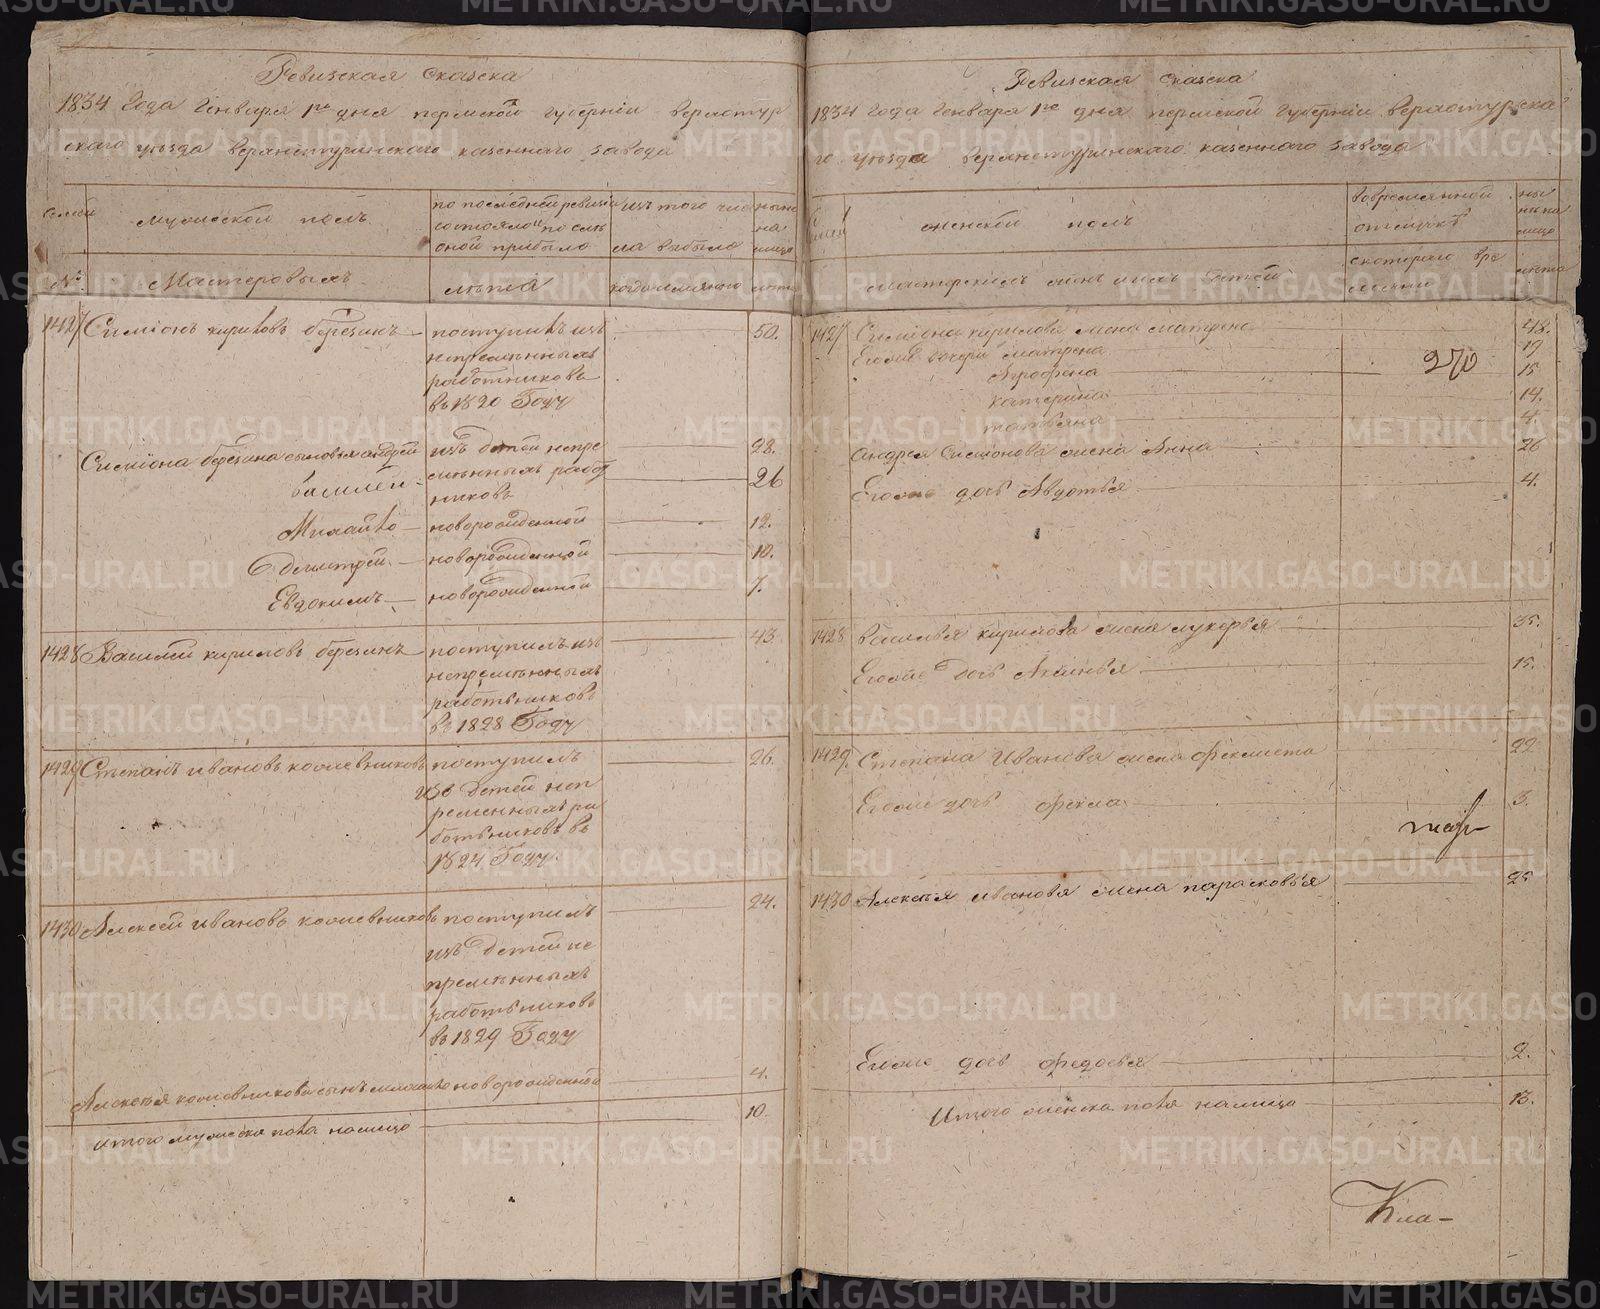 Ревизская сказка
1834 года Генваря 1го дня пермской Губернiи верхотур
скаго уезда верхнетуринскаго казеннаго завода
семей
мужеской полъ
по последней ревизiи
состояло и посля
оной прибыло
изъ того чис
ла выбыло
ныне
на
лицо
№
Мастеровыхъ
лѣта
когда имянно
лѣта
1427 Симiонъ кириловъ березинъ поступилъ изъ 50.
непремѣнныхъ
работниковъ
въ 1820 Году
Симiона березина сыновья андрей изъ детей непре 28.
василей мѣнныхъ работ 26
никовъ
Михайло новорожденной 12.
Демитрей новорожденной 10.
Евдокимъ новорожденной 7.
1428 Василей кириловъ березинъ поступилъ изъ 43.
непремѣнныхъ
работниковъ
въ 1828 Году
1429 Степанъ ивановъ кожевниковъ поступилъ 26.
изъ детей неп
ременныхъ ра
ботниковъ въ
1824 Году
1430 Алексей ивановъ кожевниковъ поступилъ 24.
изъ детей не
премѣнныхъ
работниковъ
въ 1829 Году
Алексея кожевникова сынъ михайло новорожденной 4.
итого мужеска пола налицо 10.
Ревизская сказка
1834 года Генваря 1го дня пермской Губернiи верхотурска
го уезда верхнетуринскаго казеннаго завода
семей
женской полъ
вовремянной
отлучкѣ
ны
не на
лицо
мастерскихъ женъ и ихъ детей
скотораго вре
мяни
лѣта
1427 Симiона кирилова жена матрена 48.
Егоже дочери матрена 19
270
Агрофена 15
катерина 14.
татьяна 4
андрея Симионова жена Анна 26
Егоже дочь Авдотья 4.
1428 василья кирилова жена лукерья 35.
Егоже дочь Аксинья 15.
1429. Степана Иванова жена феклиста 22
Егоже дочь фекла 3.
1430 Алексея иванова жена парасковья 25
Егоже дочь федосья 2.
Итого женска пола налицо 13.
Кла-
METRIKI.GASO-URAL.RU